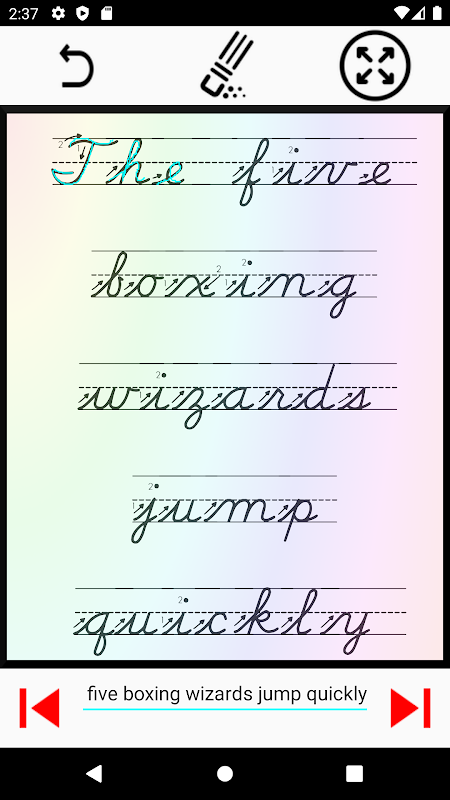 2:37
The five
boxing
wizards
jump
quickly
five boxing wizards jump quickly